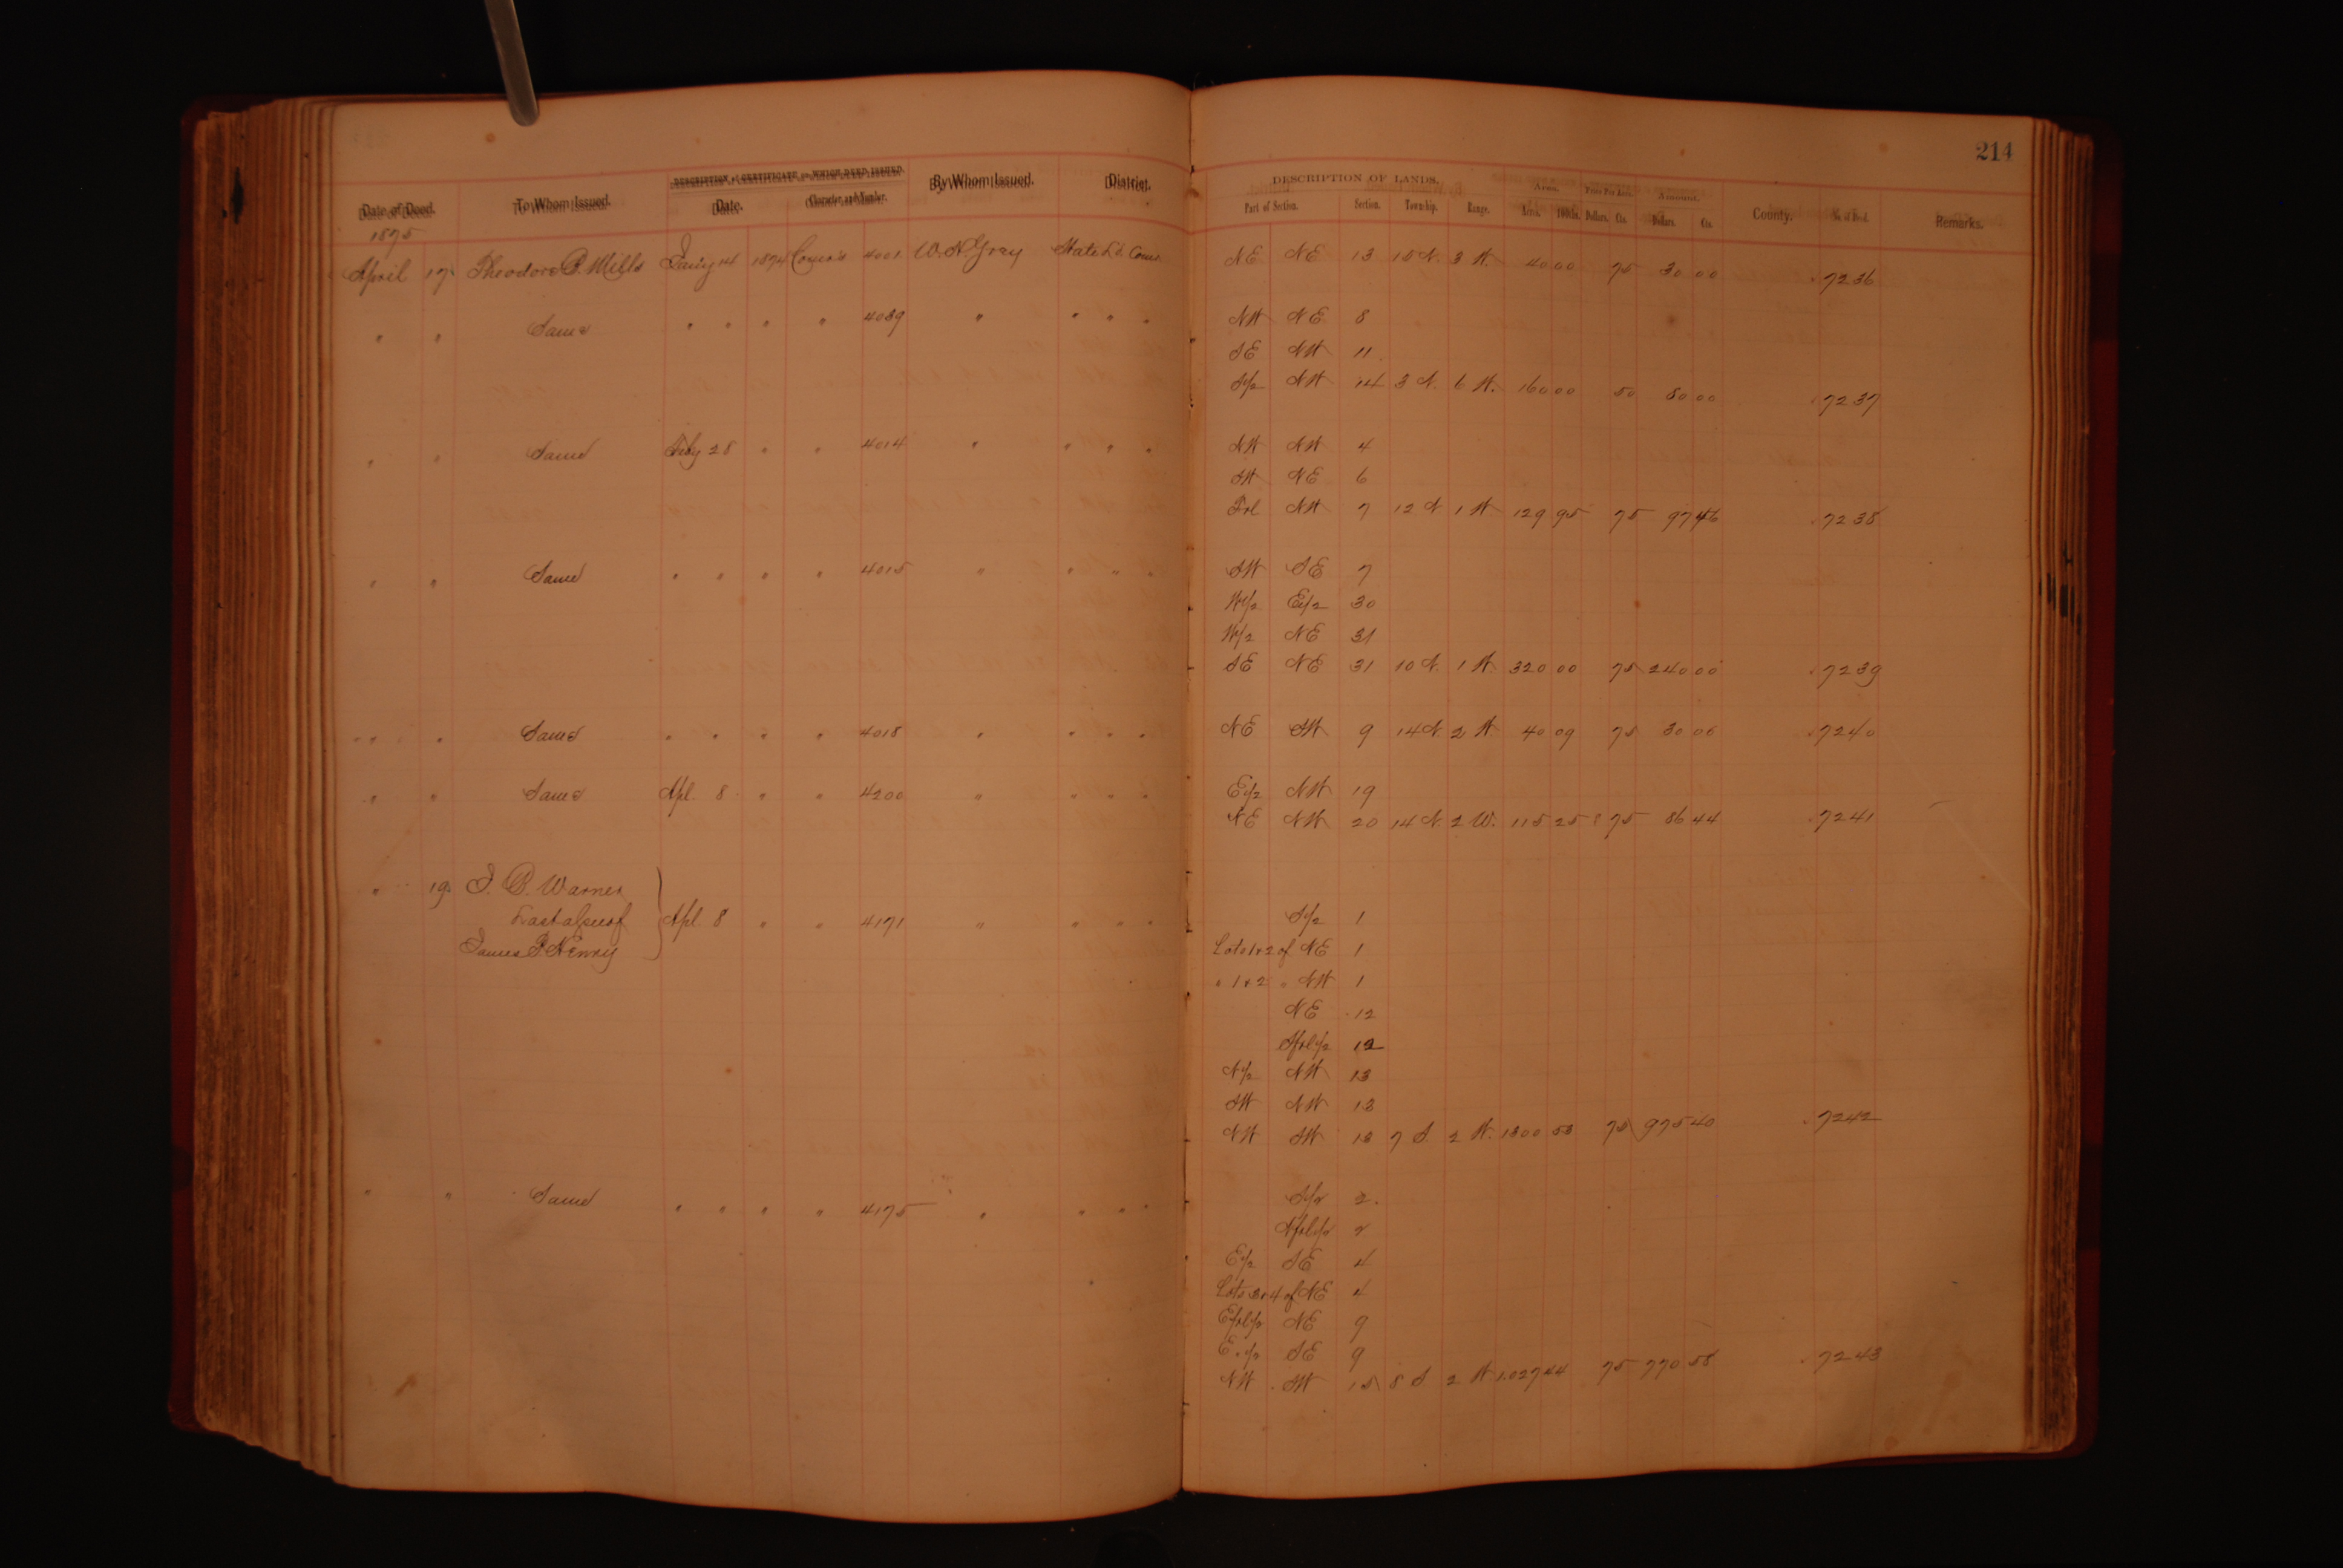 214
DESCRIPTION of CERTIFICATE on WHICH DEED ISSUED. DESCRIPTION OF LANDS. Acres. Price Per Acre. Amount.
Date of Deed. To Whom Issued. Date. Character and Number. By Whom Issued. District. Part of Section. Section. Township. Range. Acres. 100ths. Dollars. Cts. Dollars. Cts. County. No. of Deed. Remarks.
1875
April 17 Theodore P. Mills Jany 14 1874 Comr's 4001 W. N. Gray State Ld. Comr NE NE 13 15 N. 3 W. 40 00 75 30 00 7236
" " Same " " " " 4089 " " " " NW NE 8
SE NW 11
S½ NW 14 3 N. 6 W. 160 00 50 80 00 7237
" " Same Feby 28 " " 4014 " " " " NW NW 4
SW NE 6
Frl NW 7 12 N 1 W 129 95 75 97 46 7238
" " Same " " " " 4015 " " " " SW SE 7
W½ E½ 30
W½ NE 31
SE NE 31 10 N. 1 W. 320 00 75 240 00 7239
" " Same " " " " 4018 " " " " NE SW 9 14 N 2 W 40 09 75 30 06 7240
" " Same Apl. 8 " " 4200 " " " " E½ NW 19
NE NW 20 14 N. 2 W. 115 25 75 86 44 7241
" 19 J. B. Warner
Last alsee of Apl 8 " " 4171 " " " " S½ 1
James P. Henry Lots 1 & 2 of NE 1
" 1 & 2 " NW 1
NE 12
Sfrl½ 12
N½ NW 13
SW NW 13
NW SW 13 7 S. 2 W. 1300 53 75 975 40 7242
" " Same " " " " 4175 " " " " S½ 2
Nfrl½ 2
E½ SE 4
Lots 3 & 4 of NE 4
Efrl½ NE 9
E.½ SE 9
NW SW 15 8 S 2 W 1.027 44 75 770 58 7243